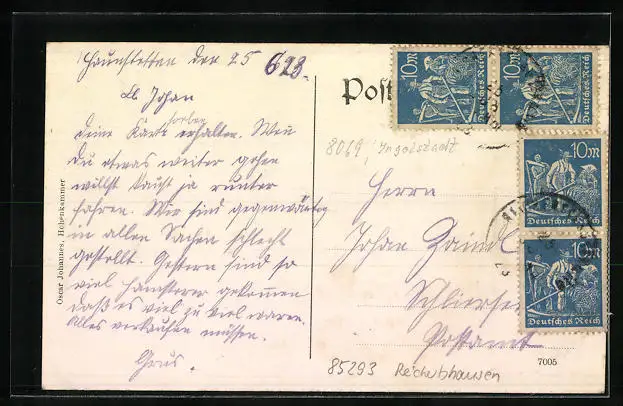 Haunstetten den 25 6 23.
Lb. Johan
soeben
deine Karte erhalten. Wen
du etwas weiter gehen
willst kauhst ja runter
fahren. Wir sind gegenwärtig
in allen Sachen schlecht
gestellt. Gestern sind so
viel Hamsterer gekommen
daß es viel zu viel waren.
Alles verkaufen müssen.
Grus.
Oscar Johannes, Hohenkammer
Post
8069 Ingolstadt
Herrn
Johan
Schliersee
Postamt
85293 Reichertshausen
7005
10 M
Deutsches Reich
10 M
Deutsches Reich
10 M
Deutsches Reich
10 M
Deutsches Reich